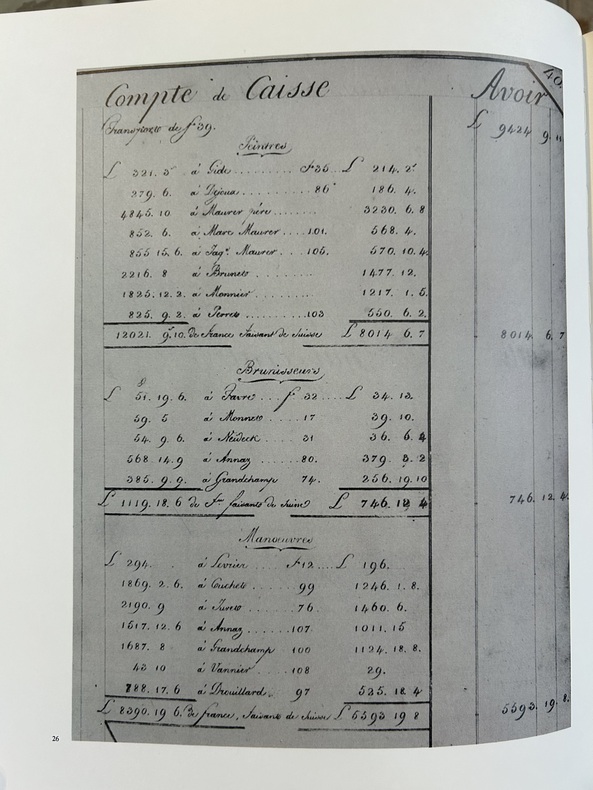 Compte de Caisse Avoir 40.
Transporté de f° 39. L 9424 9. 11
Peintres
L 321. 3 à Gide f° 35 L 214. 2
279. 6. à Dejoux 86 186. 4.
4845. 10 à Maurer père 3230. 6. 8
852. 6. à Marc Maurer 101. 568. 4.
855 15. 6. à Jaqs. Maurer 105. 570. 10. 4
2216. 8 à Brunet 1477. 12.
1825. 12. 2. à Monnier 1217. 1. 5.
825. 9. 2. à Perret 103 550. 6. 2.
12021. 9. 10. de france faisant de suisse L 8014 6. 7 8014 6. 7
Brunisseurs
L 51. 19. 6. à Favre f° 32 L 34. 13.
59. 5 à Monnet 17 39. 10.
54. 9. 6. à Neideck 31 36. 6. 4
568. 14. 9 à Annaz 80. 379. 3. 2
385. 9. 9. à Grandchamp 74. 256. 19. 10
L 1119. 18. 6 de fce faisants de suisse L 746. 12 4 746. 12. 4.
Manœuvres
L 294. à Levrier f° 12 L 196.
1869. 2. 6. à Cuchet 99 1246. 1. 8.
2190. 9 à Juret 76 1460. 6.
1517. 12. 6 à Annaz 107 1011. 15
1687. 8 à Grandchamp 100 1124. 18. 8.
43 10 à Vannier 108 29.
788. 17. 6 à Drouillard 97 525. 18. 4
L 8390. 19 6. de france, faisants de suisse L 5593 19 8 5593. 19. 8.
26